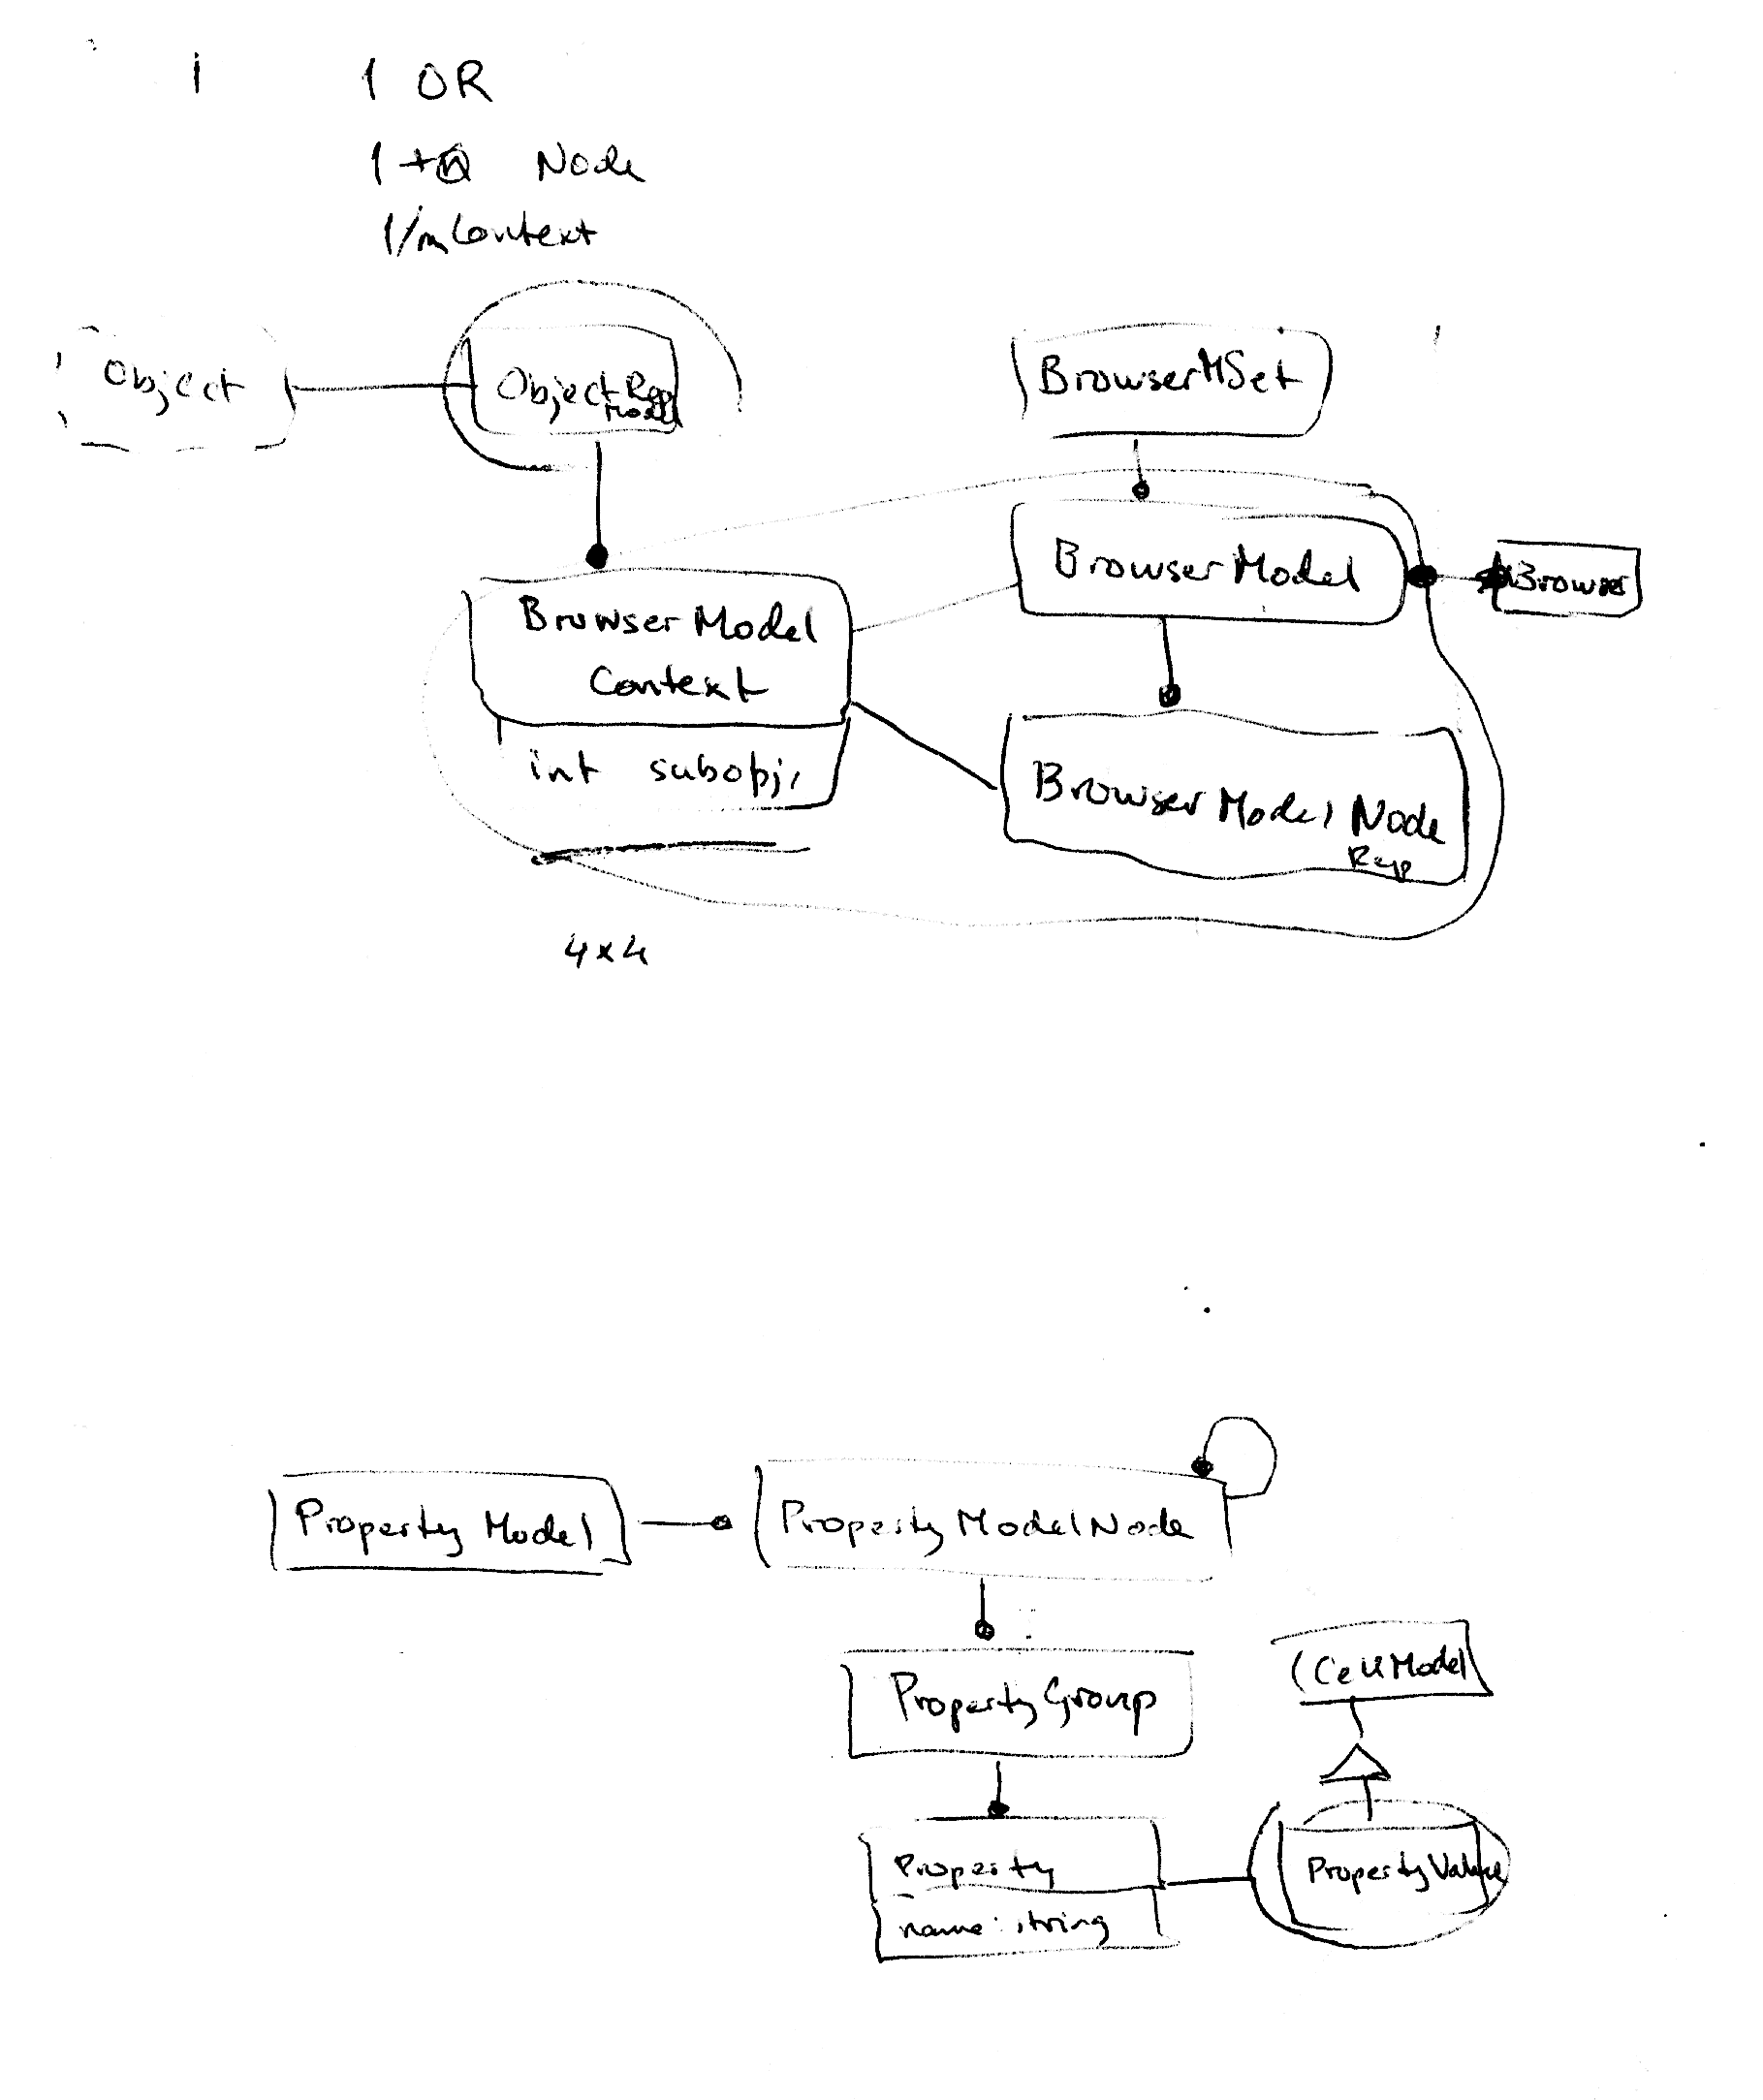 1 1 OR
1 + n Node
1/m Context
Object
ObjectRep
Model
BrowserMSet
BrowserModel
Browser
BrowserModel
Context
int subobj;
BrowserModelNode
Rep
4x4
Property Model
PropertyModelNode
PropertyGroup
(CellModel
Property
name: string
PropertyValue